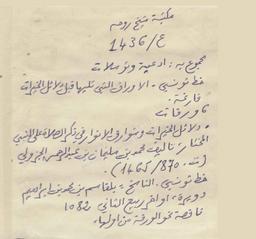 مكتبة شيخ روحه
1436/ع
مجموع به : أدعية وتوسلات
خط تونسي - الأوراق التي تليها قبل دلائل الخيرات
فارغة .
6 ورقات
• دلائل الخيرات وشوارق الأنوار في ذكر الصلاة على النبي
المختار ؛ تأليف محمد بن سليمان بن عبد الرحمن الجزولي
(ت. 870/1465) .
خط تونسي . الناسخ : بلقاسم بن محمد بن إبراهيم
دويرة ، أواخر ربيع الثاني 1082
ناقصة نحو الورقة من أولها .